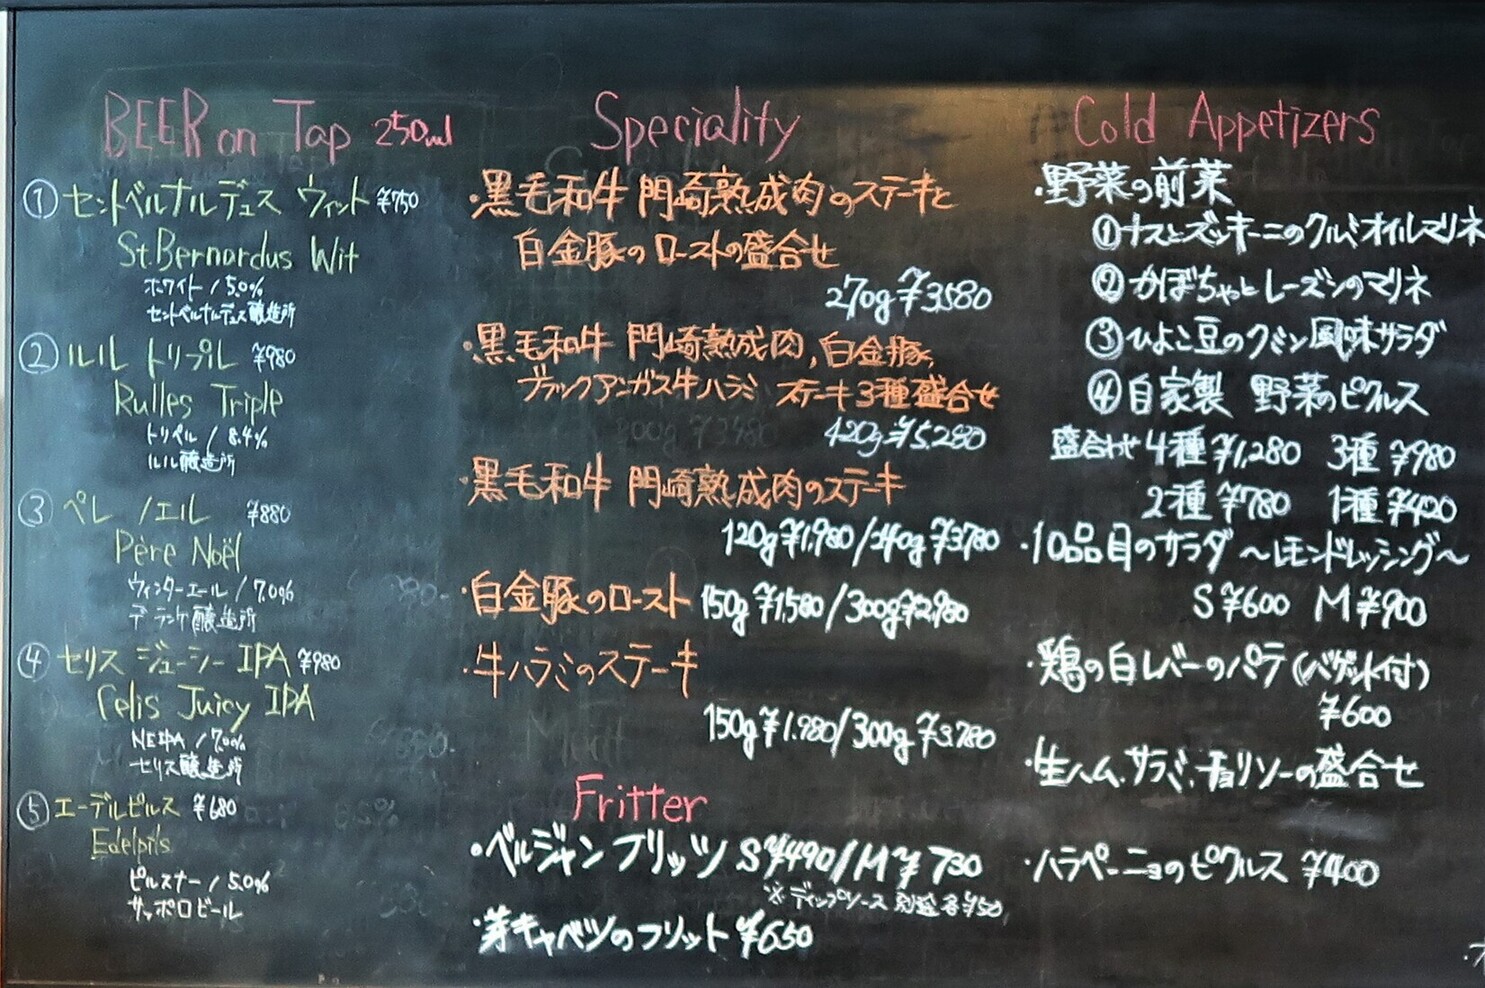 BEER on Tap 250ml
① セントベルナルデュス ウィット ¥750
St.Bernardus Wit
ホワイト / 5.0%
セントベルナルデュス醸造所
② ルル トリプル ¥980
Rulles Triple
トリペル / 8.4%
ルル醸造所
③ ペレ ノエル ¥880
Père Noël
ウィンターエール / 7.0%
デ ランケ醸造所
④ セリス ジューシー IPA ¥980
Celis Juicy IPA
NEIPA / 7.0%
セリス醸造所
⑤ エーデルピルス ¥680
Edelpils
ピルスナー / 5.0%
サッポロビール
Speciality
・黒毛和牛 門崎熟成肉のステーキと
白金豚のローストの盛合せ
270g ¥3,580
・黒毛和牛 門崎熟成肉,白金豚,
ブラックアンガス牛ハラミ ステーキ3種盛合せ
420g ¥5,280
・黒毛和牛 門崎熟成肉のステーキ
120g ¥1,980 / 240g ¥3,780
・白金豚のロースト 150g ¥1,580 / 300g ¥2,980
・牛ハラミのステーキ
150g ¥1,980 / 300g ¥3,780
Fritter
・ベルジャンフリッツ S ¥490 / M ¥730
※ ディップソース 別盛 各¥50
・芽キャベツのフリット ¥650
Cold Appetizers
・野菜の前菜
①ナスとズッキーニのクルミオイルマリネ
②かぼちゃとレーズンのマリネ
③ひよこ豆のクミン風味サラダ
④自家製 野菜のピクルス
盛合わせ 4種 ¥1,280 3種 ¥980
2種 ¥780 1種 ¥420
・10品目のサラダ 〜レモンドレッシング〜
S ¥600 M ¥900
・鶏の白レバーのパテ (バゲット付)
¥600
・生ハム、サラミ、チョリソーの盛合せ
・ハラペーニョのピクルス ¥400